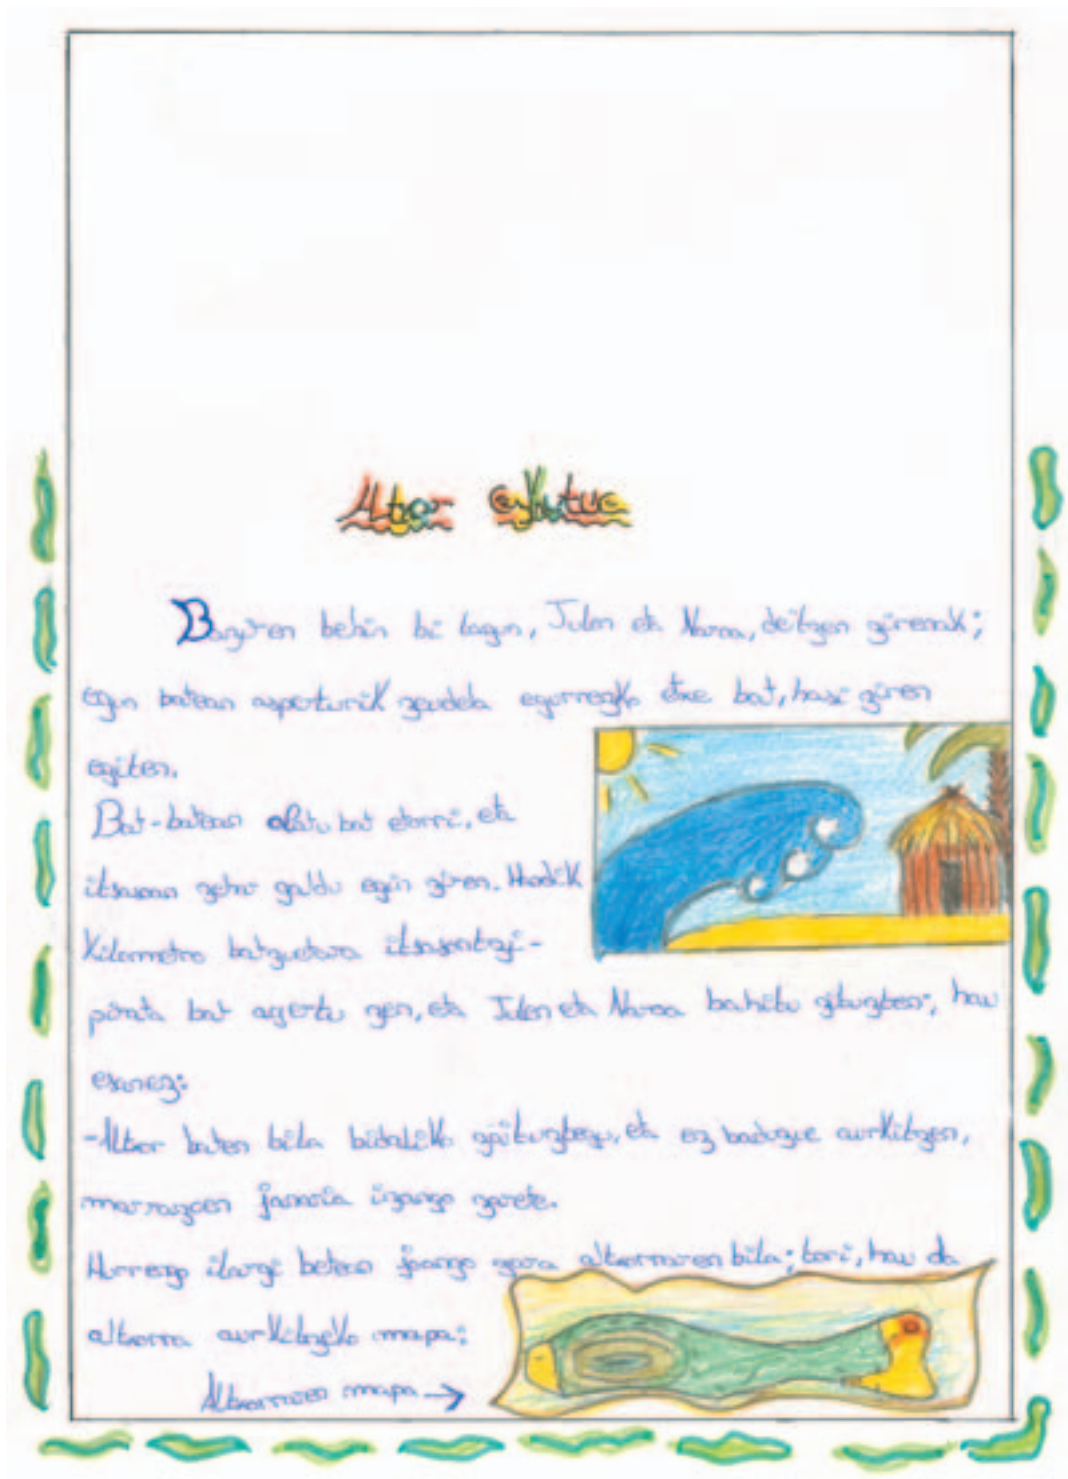 Altxor ezkutua
Baziren behin bi lagun, Julen eta Naroa, deitzen zirenak;
egun batean asperturik zeudela egurrezko etxe bat, hasi ziren
egiten.
Bat-batean olatu bat etorri, eta
itsasoan zehar galdu egin ziren. Handik
Kilometro batzuetara itsasontzi-
pirata bat agertu zen, eta Julen eta Naroa bahitu zituzten; hau
esanez:
-Altxor baten bila bidaliko zaituztegu, eta ez baduzue aurkitzen,
marrazoen janaria izango zarete.
Hurrengo ilargi betean joango gara altxorraren bila; tori, hau da
altxorra aurkitzeko mapa:
Altxorraren mapa →